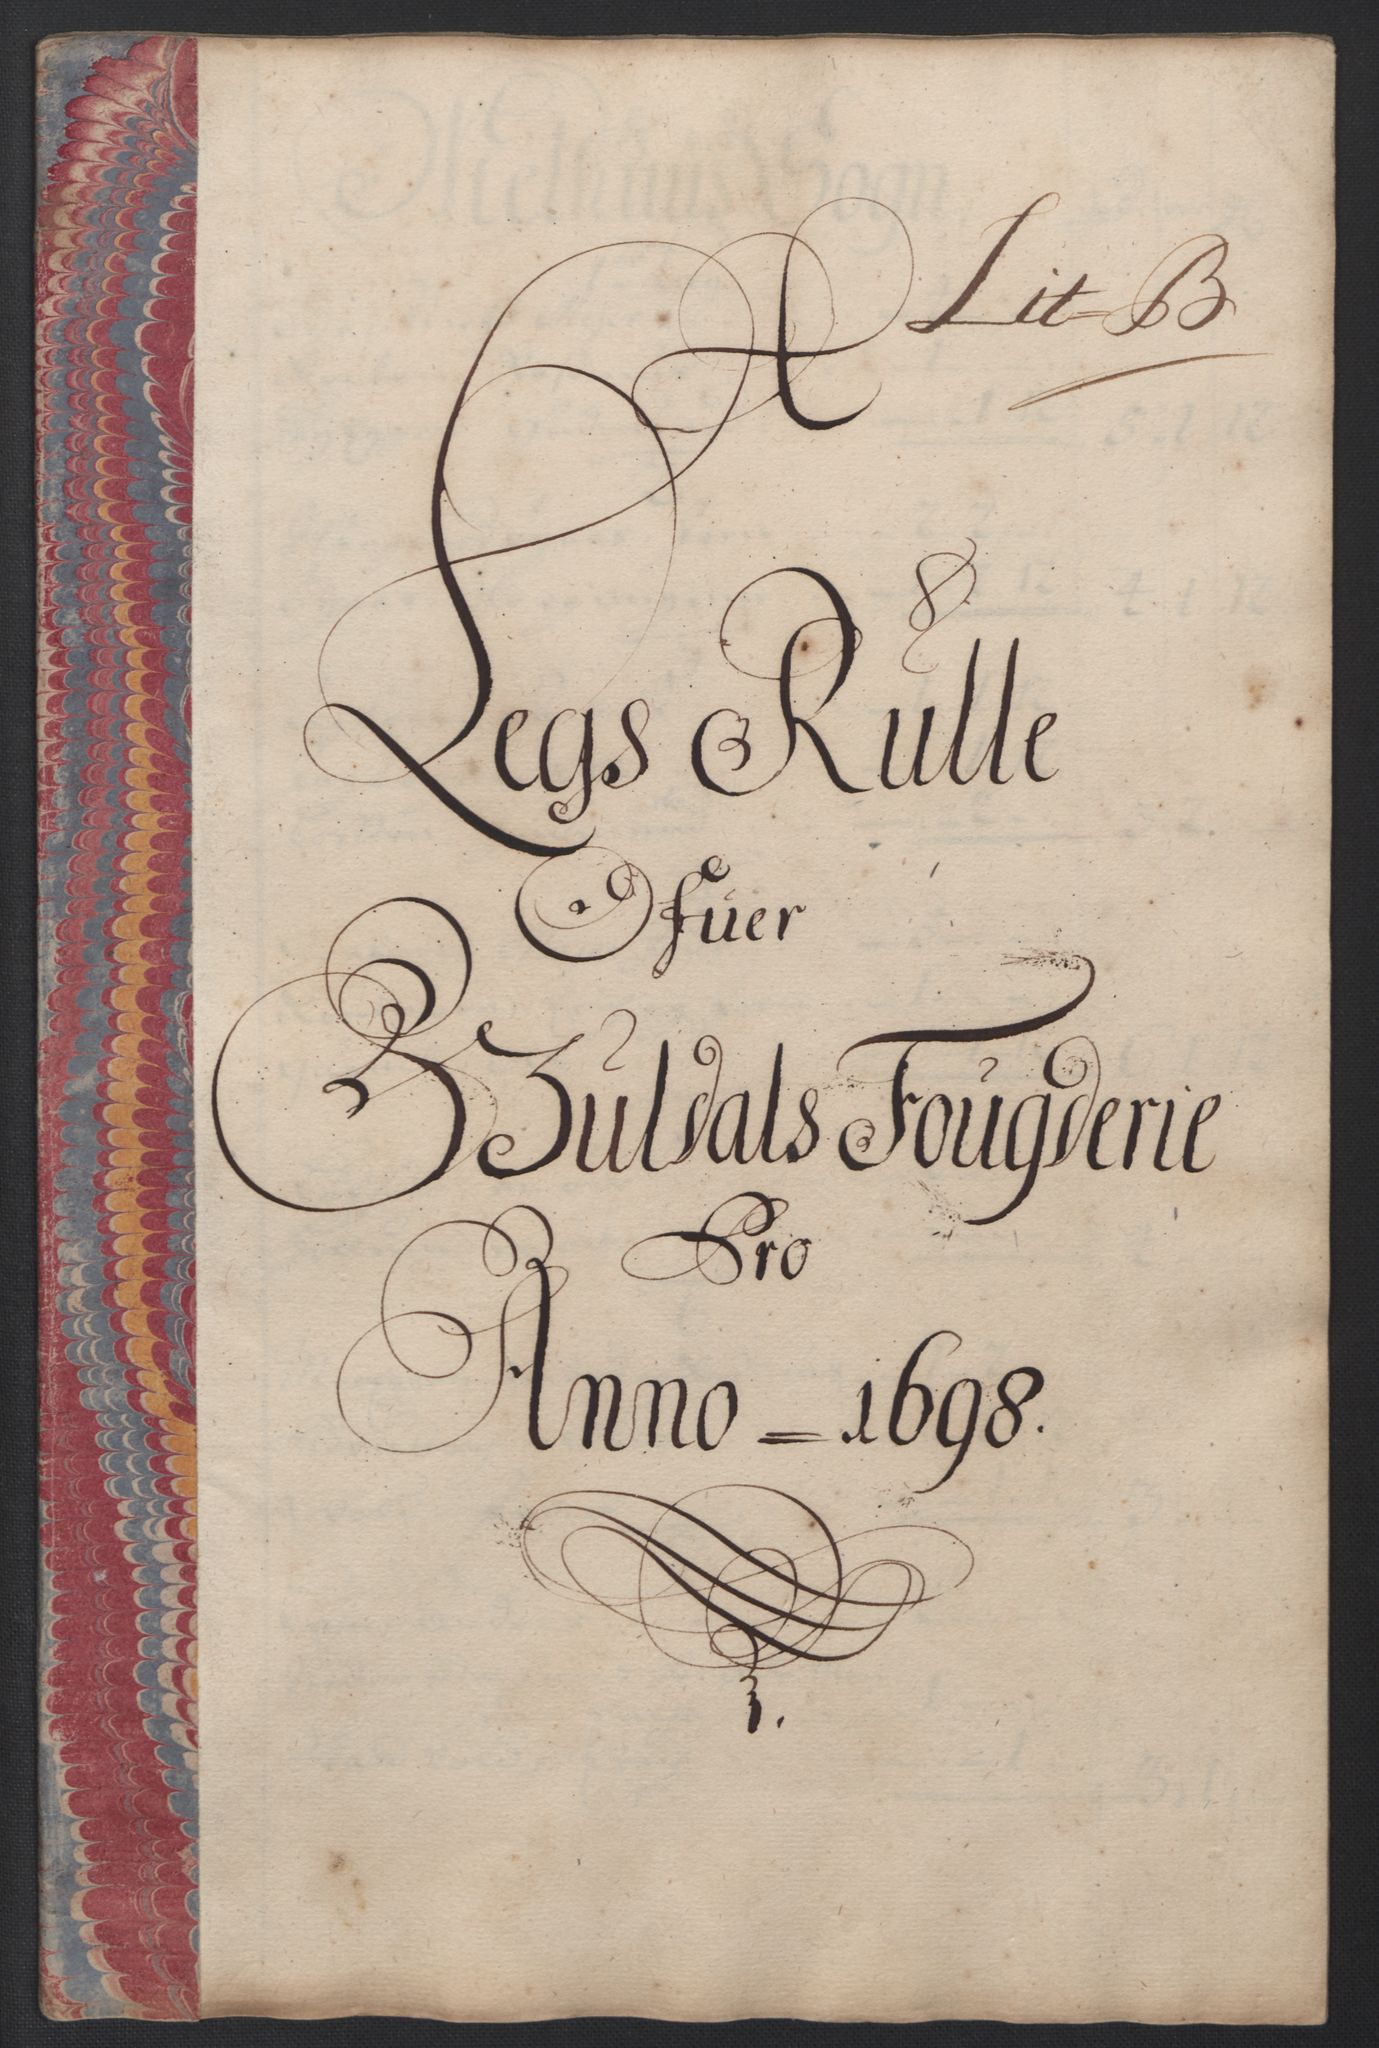 Lit B
Legs Rulle
Ofuer
Guldals Fougderie
Pro
Anno = 1698.